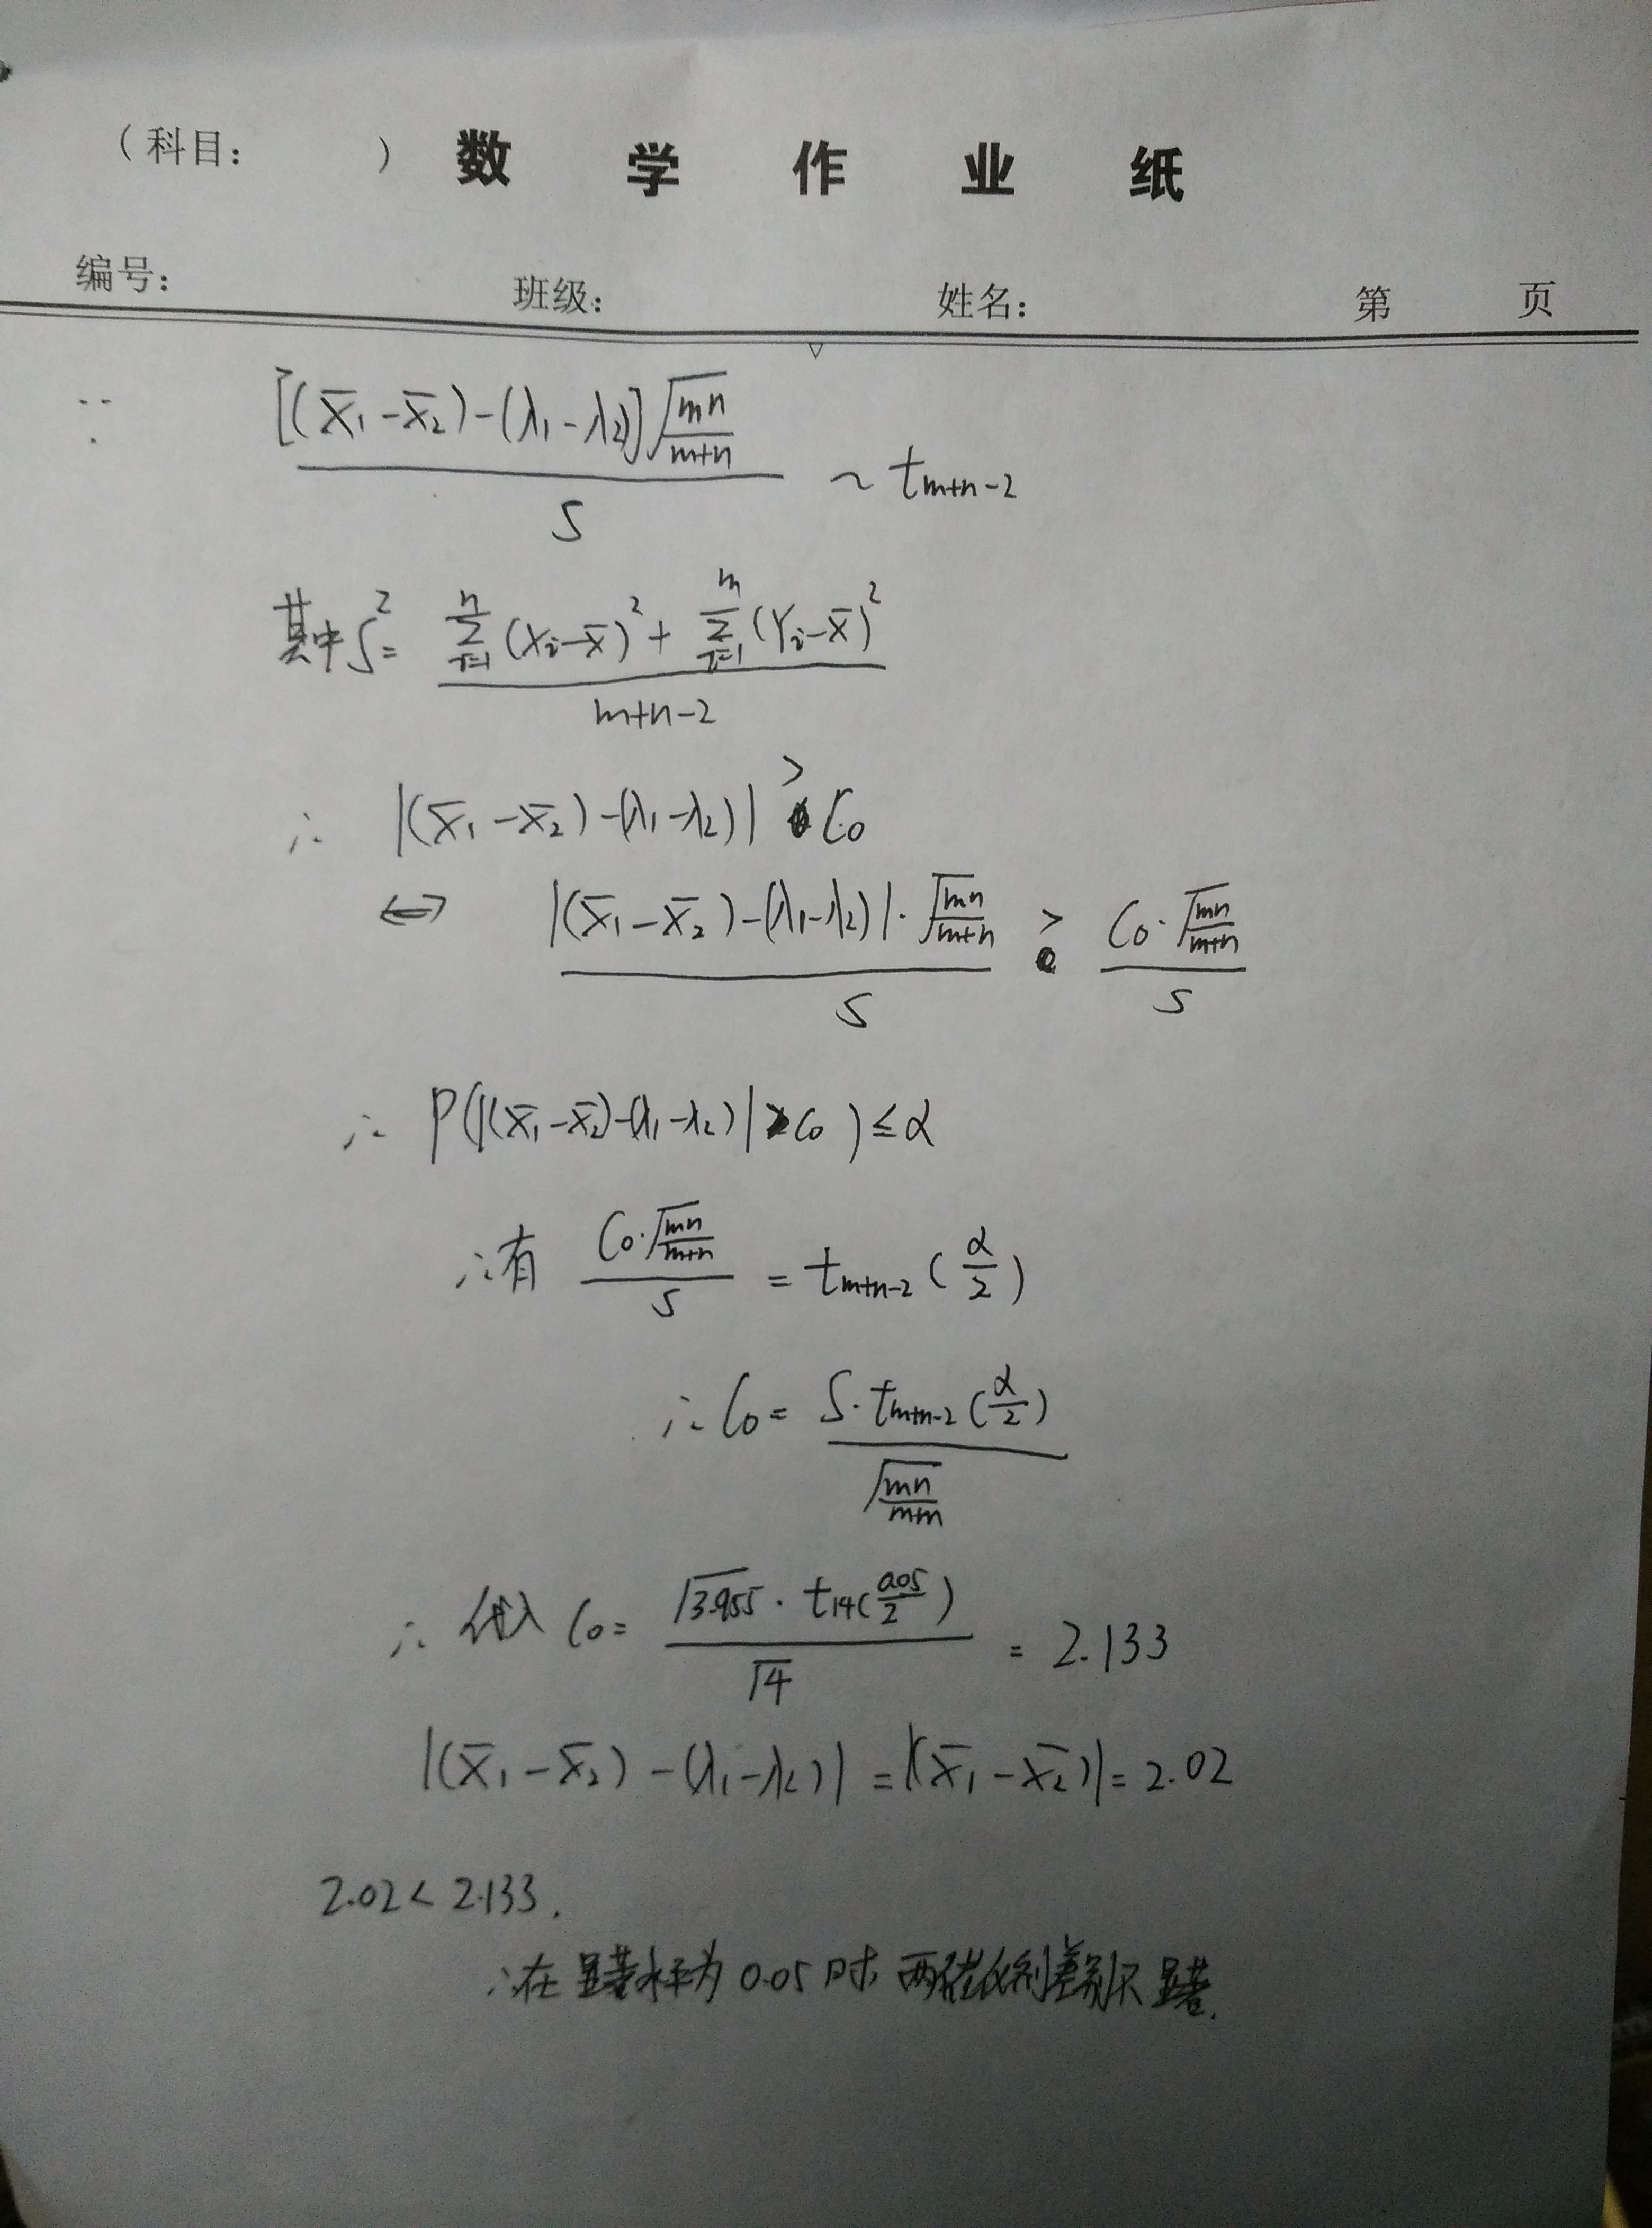 （科目：　　　）数 学 作 业 纸
编号：　　　班级：　　　姓名：　　　第　　页
∵ [(x̄₁-x̄₂)-(λ₁-λ₂)]√(mn/(m+n)) / S ~ t_{m+n-2}
其中 S² = [∑_{i=1}^{n}(Xᵢ-x̄)² + ∑_{i=1}^{m}(Yᵢ-x̄)²] / (m+n-2)
∴ |(x̄₁-x̄₂)-(λ₁-λ₂)| > C₀
⟷ |(x̄₁-x̄₂)-(λ₁-λ₂)|·√(mn/(m+n)) / S > C₀·√(mn/(m+n)) / S
∴ P(|(x̄₁-x̄₂)-(λ₁-λ₂)|>C₀) ≤ α
∴有 C₀·√(mn/(m+n)) / S = t_{m+n-2}(α/2)
∴ C₀ = S·t_{m+n-2}(α/2) / √(mn/(m+n))
∴ 代入 C₀ = √3.955 · t₁₄(0.05/2) / √4 = 2.133
|(x̄₁-x̄₂)-(λ₁-λ₂)| = |(x̄₁-x̄₂)| = 2.02
2.02 < 2.133.
∴在显著水平为 0.05 时 两 差别不显著.